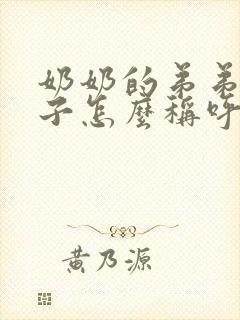 奶奶的弟弟
子怎麼稱呼
黃乃源